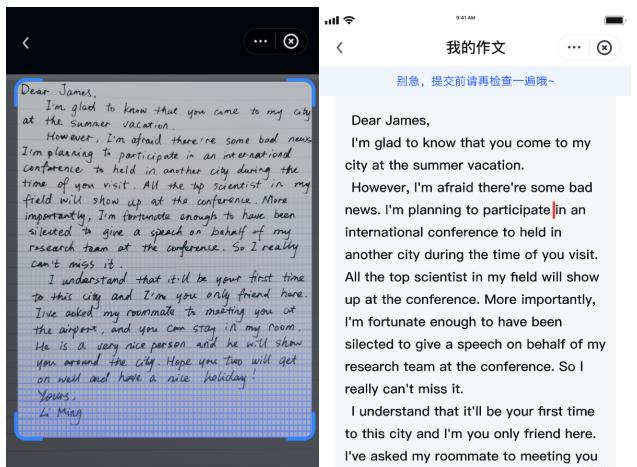 Dear James,
I'm glad to know that you come to my city
at the summer vacation.
However, I'm afraid there're some bad news.
I'm planning to participate in an international
conference to held in another city during the
time of you visit. All the top scientist in my
field will show up at the conference. More
importantly, I'm fortunate enough to have been
silected to give a speech on behalf of my
research team at the conference. So I really
can't miss it.
I understand that it'll be your first time
to this city and I'm you only friend here.
I've asked my roommate to meeting you at
the airport, and you can stay in my room.
He is a very nice person and he will show
you around the city. Hope you two will get
on well and have a nice holiday!
Yours,
Li Ming
9:41 AM
我的作文
别急，提交前请再检查一遍哦~
Dear James,
I'm glad to know that you come to my
city at the summer vacation.
However, I'm afraid there're some bad
news. I'm planning to participate in an
international conference to held in
another city during the time of you visit.
All the top scientist in my field will show
up at the conference. More importantly,
I'm fortunate enough to have been
silected to give a speech on behalf of my
research team at the conference. So I
really can't miss it.
I understand that it'll be your first time
to this city and I'm you only friend here.
I've asked my roommate to meeting you